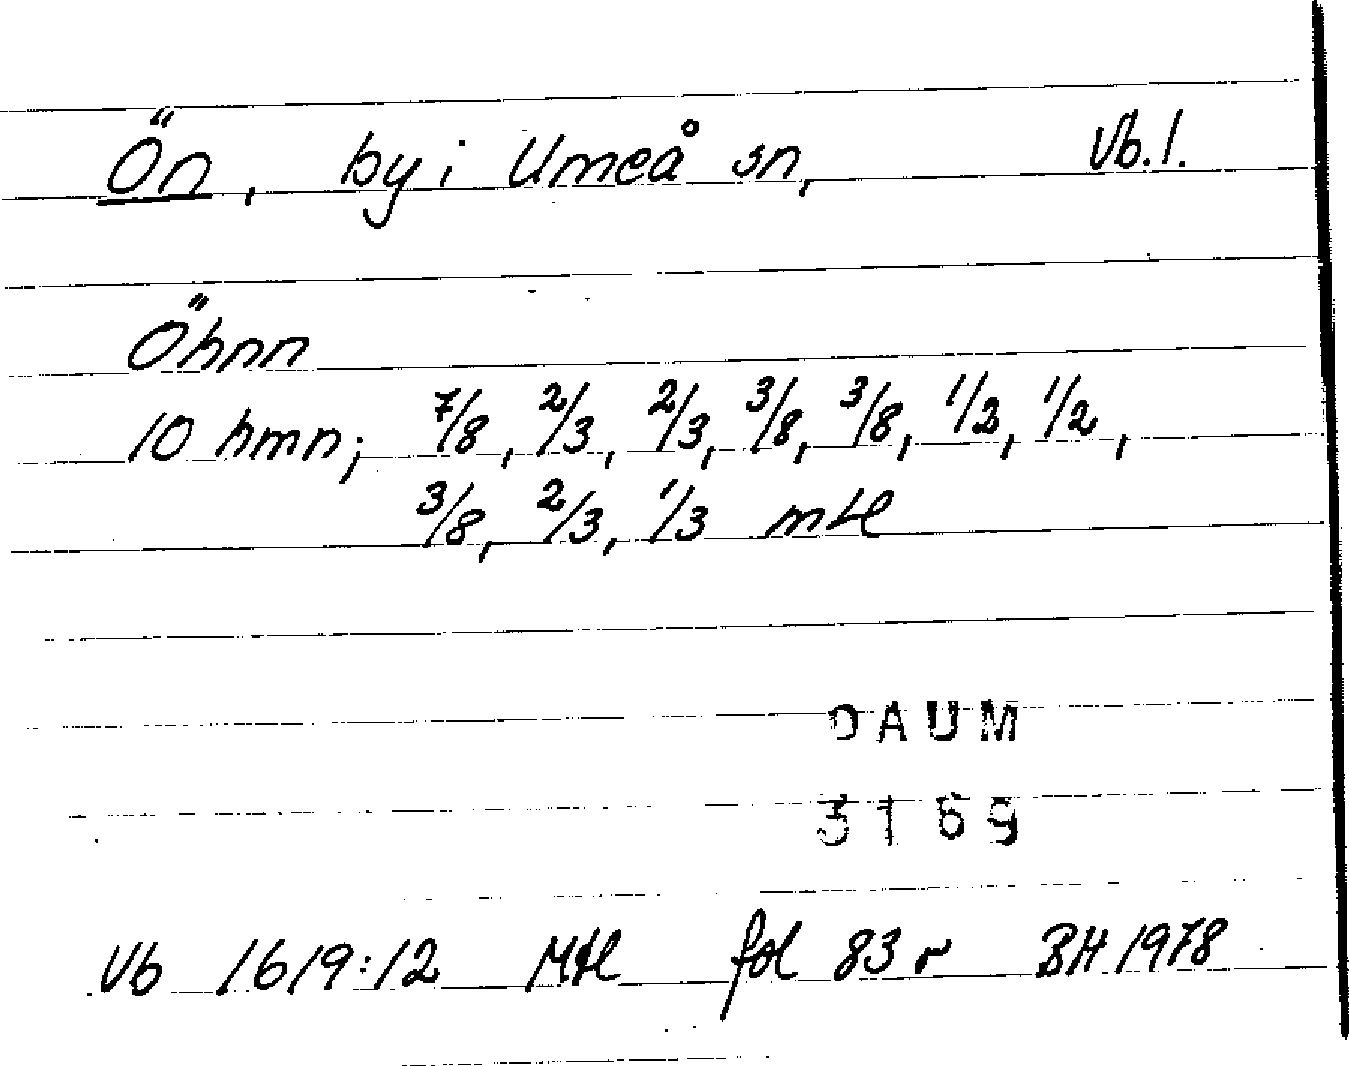 Ön, by i Umeå sn, Vb.l.
Öhnn
10 hmn; 7/8, 2/3, 2/3, 3/8, 3/8, 1/2, 1/2,
3/8, 2/3, 1/3 mtl
DAUM
3169
Vb 1619:12 Mtl fol 83 r BH 1978